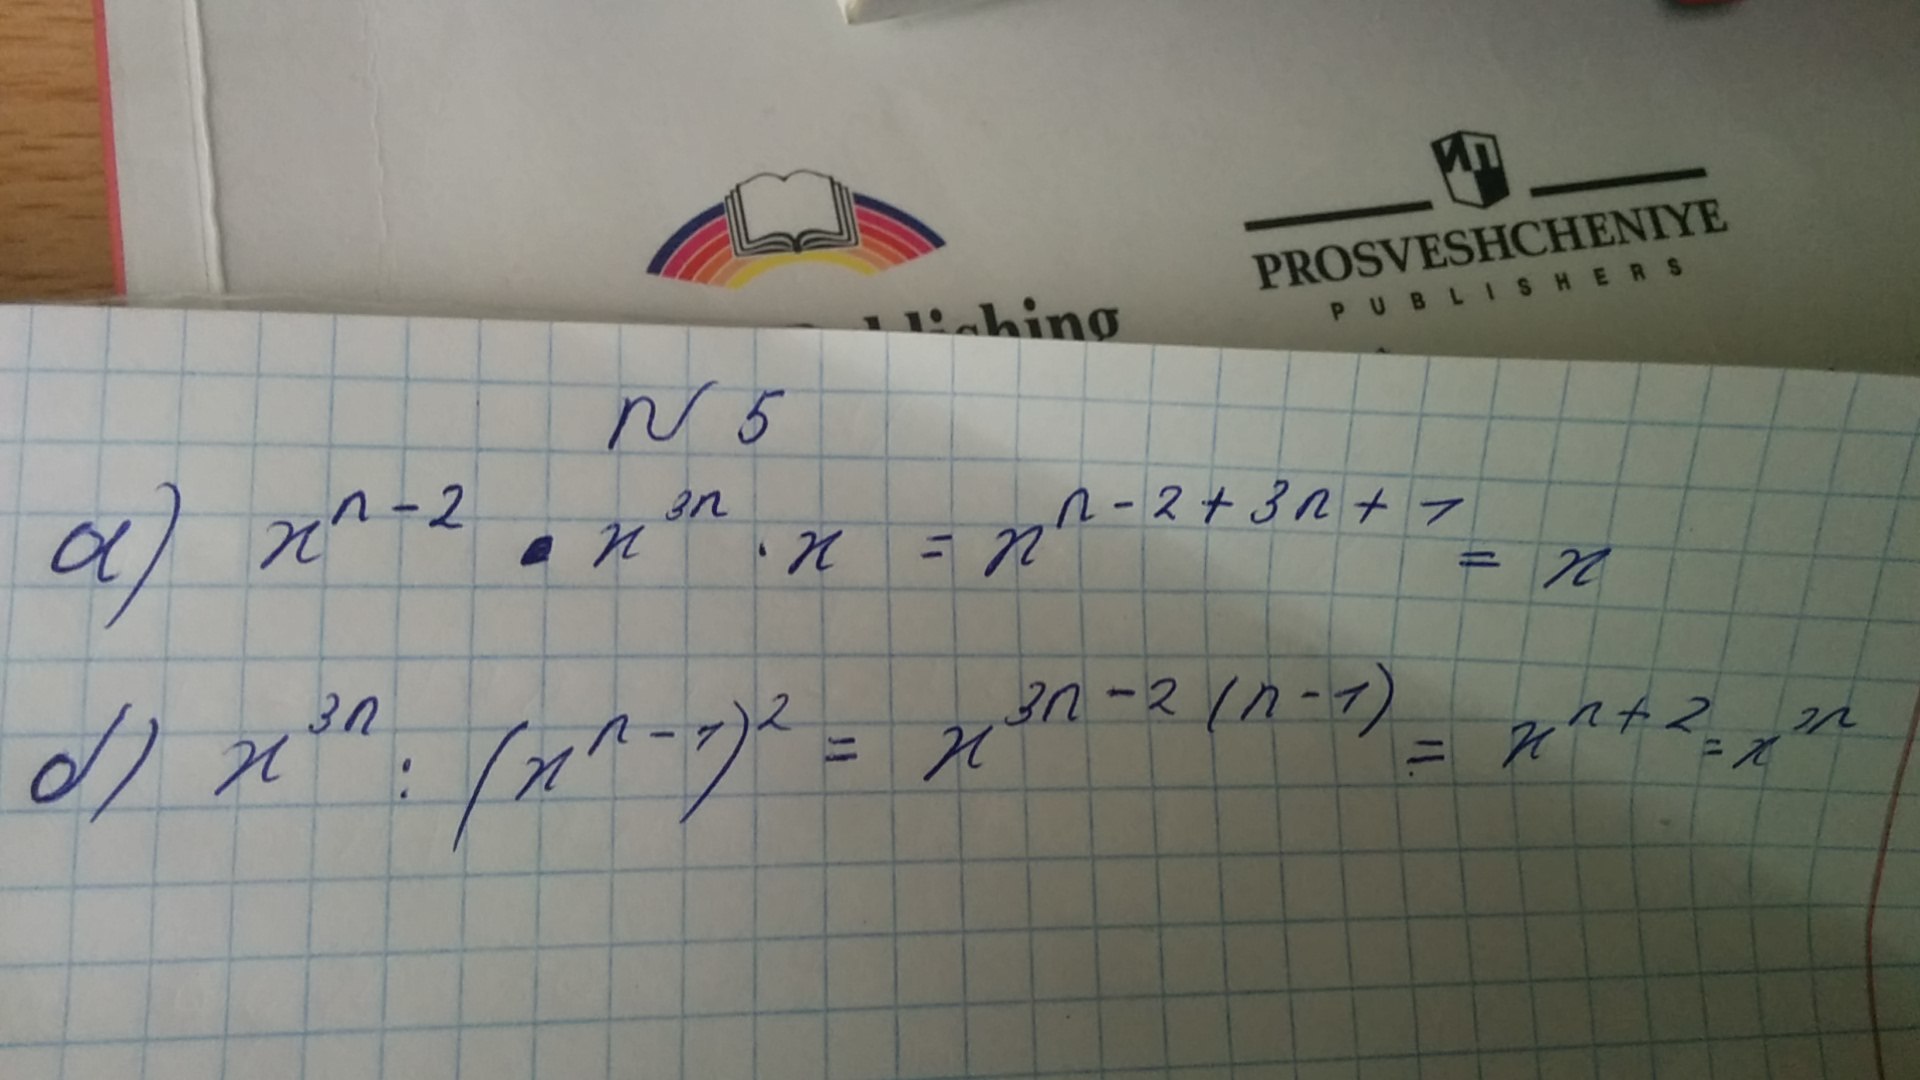 PROSVESHCHENIYE
PUBLISHERS
N 5
a) x^{n-2} · x^{3n} · x = x^{n-2+3n+1} = x
б) x^{3n} : (x^{n-1})^2 = x^{3n-2(n-1)} = x^{n+2} = x^{3n}